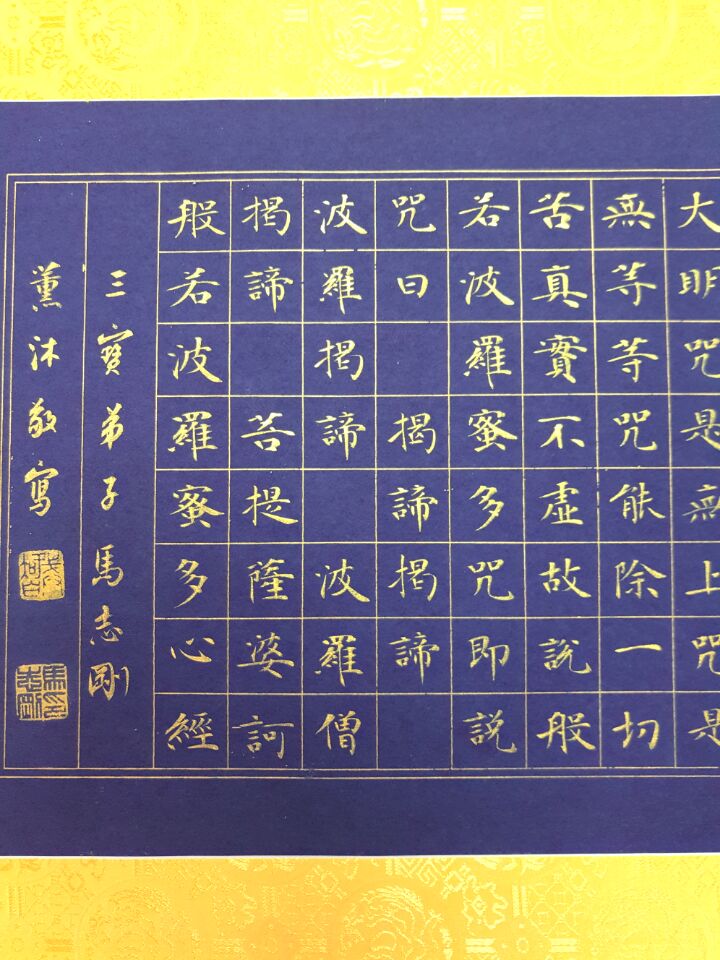 大明咒是無上咒是
無等等咒能除一切
苦真實不虛故說般
若波羅蜜多咒即說
咒曰 揭諦揭諦
波羅揭諦 波羅僧
揭諦 菩提薩婆訶
般若波羅蜜多心經
三寶弟子馬志剛
薰沐敬寫